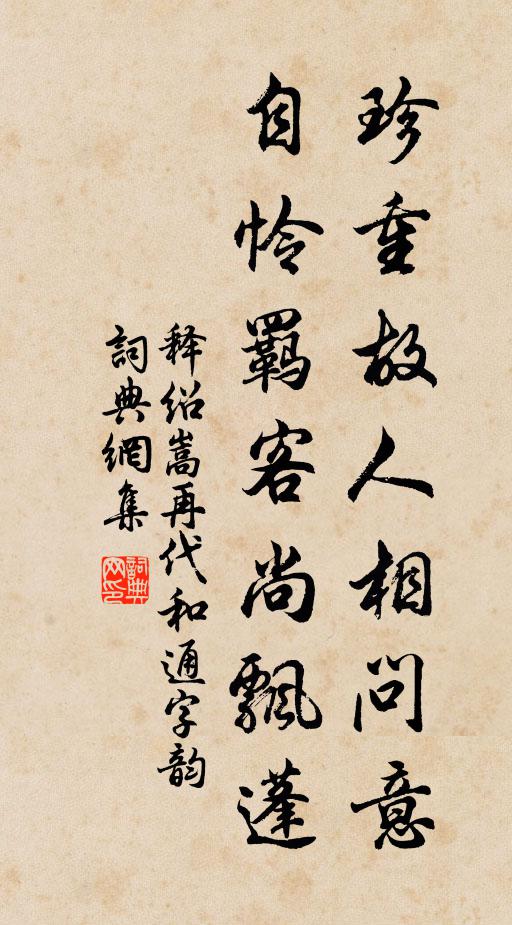 珍重故人相問意
自怜羈客尚飄蓬
释绍嵩再代和通字韵
詞典網集
詞典网印